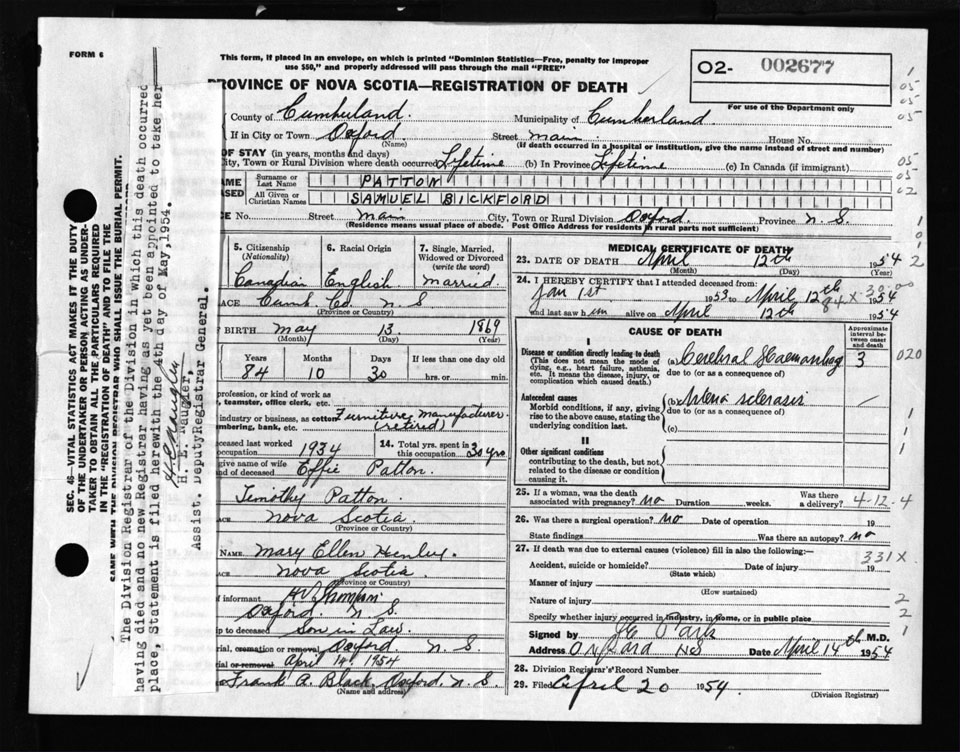 FORM 6
This form, if placed in an envelope, on which is printed "Dominion Statistics—Free, penalty for improper
use $50," and properly addressed will pass through the mail "FREE"
O2- 002677
PROVINCE OF NOVA SCOTIA—REGISTRATION OF DEATH
For use of the Department only
County of Cumberland. Municipality of Cumberland.
If in City or Town Oxford Street main House No.
(Name) (If death occurred in a hospital or institution, give the name instead of street and number)
OF STAY (in years, months and days)
City, Town or Rural Division where death occurred Lifetime (b) In Province Lifetime (c) In Canada (if immigrant)
Surname or Last Name PATTON
All Given or Christian Names SAMUEL BICKFORD
CE No. Street main City, Town or Rural Division Oxford. Province N. S.
(Residence means usual place of abode. Post Office Address for residents in rural parts not sufficient)
5. Citizenship (Nationality) Canadian
6. Racial Origin English
7. Single, Married, Widowed or Divorced (write the word) Married.
ACE Cumb. Co. N S
(Province or Country)
F BIRTH May 13. 1869
(Month) (Day) (Year)
Years Months Days If less than one day old
84 10 30 hrs. or min.
profession, or kind of work as
teamster, office clerk, etc.
industry / business, as cotton Furniture Manufacturer
mbering, bank, etc. (retired)
ceased last worked
occupation 1934
14. Total yrs. spent in this occupation 30 yrs
give name of wife
nd of deceased Effie Patton.
Timothy Patton.
ACE Nova Scotia
(Province or Country)
NAME. Mary Ellen Henley.
ACE Nova Scotia.
(Province or Country)
of informant
Oxford, N S.
ip to deceased Son in Law.
rial, cremation or removal Oxford, N. S.
rial or removal April 14. 1954
Frank A. Black Oxford, N. S.
(Name and address)
MEDICAL CERTIFICATE OF DEATH
23. DATE OF DEATH April 12th 1954
(Month) (Day) (Year)
24. I HEREBY CERTIFY that I attended deceased from:
Jan 1st 1953 to April 12th 1954
and last saw him alive on April 12th 1954
CAUSE OF DEATH
Approximate interval between onset and death
I
Disease or condition directly leading to death (a) Cerebral Haemorrhag 3
(This does not mean the mode of dying, e.g., heart failure, asthenia, etc. It means the disease, injury, or complication which caused death.)
due to (or as a consequence of)
Antecedent causes
Morbid conditions, if any, giving rise to the above cause, stating the underlying condition last.
(b) Arterio sclerosis
due to (or as a consequence of)
(c)
II
Other significant conditions
contributing to the death, but not related to the disease or condition causing it.
25. If a woman, was the death associated with pregnancy? no Duration weeks. Was there a delivery? 4-12-4
26. Was there a surgical operation? no Date of operation 19
State findings Was there an autopsy? no
27. If death was due to external causes (violence) fill in also the following:—
Accident, suicide or homicide? Date of injury 19
(State which)
331X
Manner of injury
(How sustained)
Nature of injury
Specify whether injury occurred in industry, in home, or in public place
Signed by M.D.
Address Oxford NS Date April 14th 1954
28. Division Registrar's Record Number
29. Filed April 20 1954.
(Division Registrar)
SEC. 46—VITAL STATISTICS ACT MAKES IT THE DUTY
OF THE UNDERTAKER OR PERSON ACTING AS UNDER-
TAKER TO OBTAIN ALL THE PARTICULARS REQUIRED
IN THE "REGISTRATION OF DEATH" AND TO FILE THE
SAME WITH THE DIVISION REGISTRAR WHO SHALL ISSUE THE BURIAL PERMIT.
The Division Registrar of the Division in which this death occurred
having died and no new Registrar having as yet been appointed to take her
place, Statement is filed herewith the 4th day of May, 1954.
H. E. Naugler,
Assist. Deputy Registrar General.